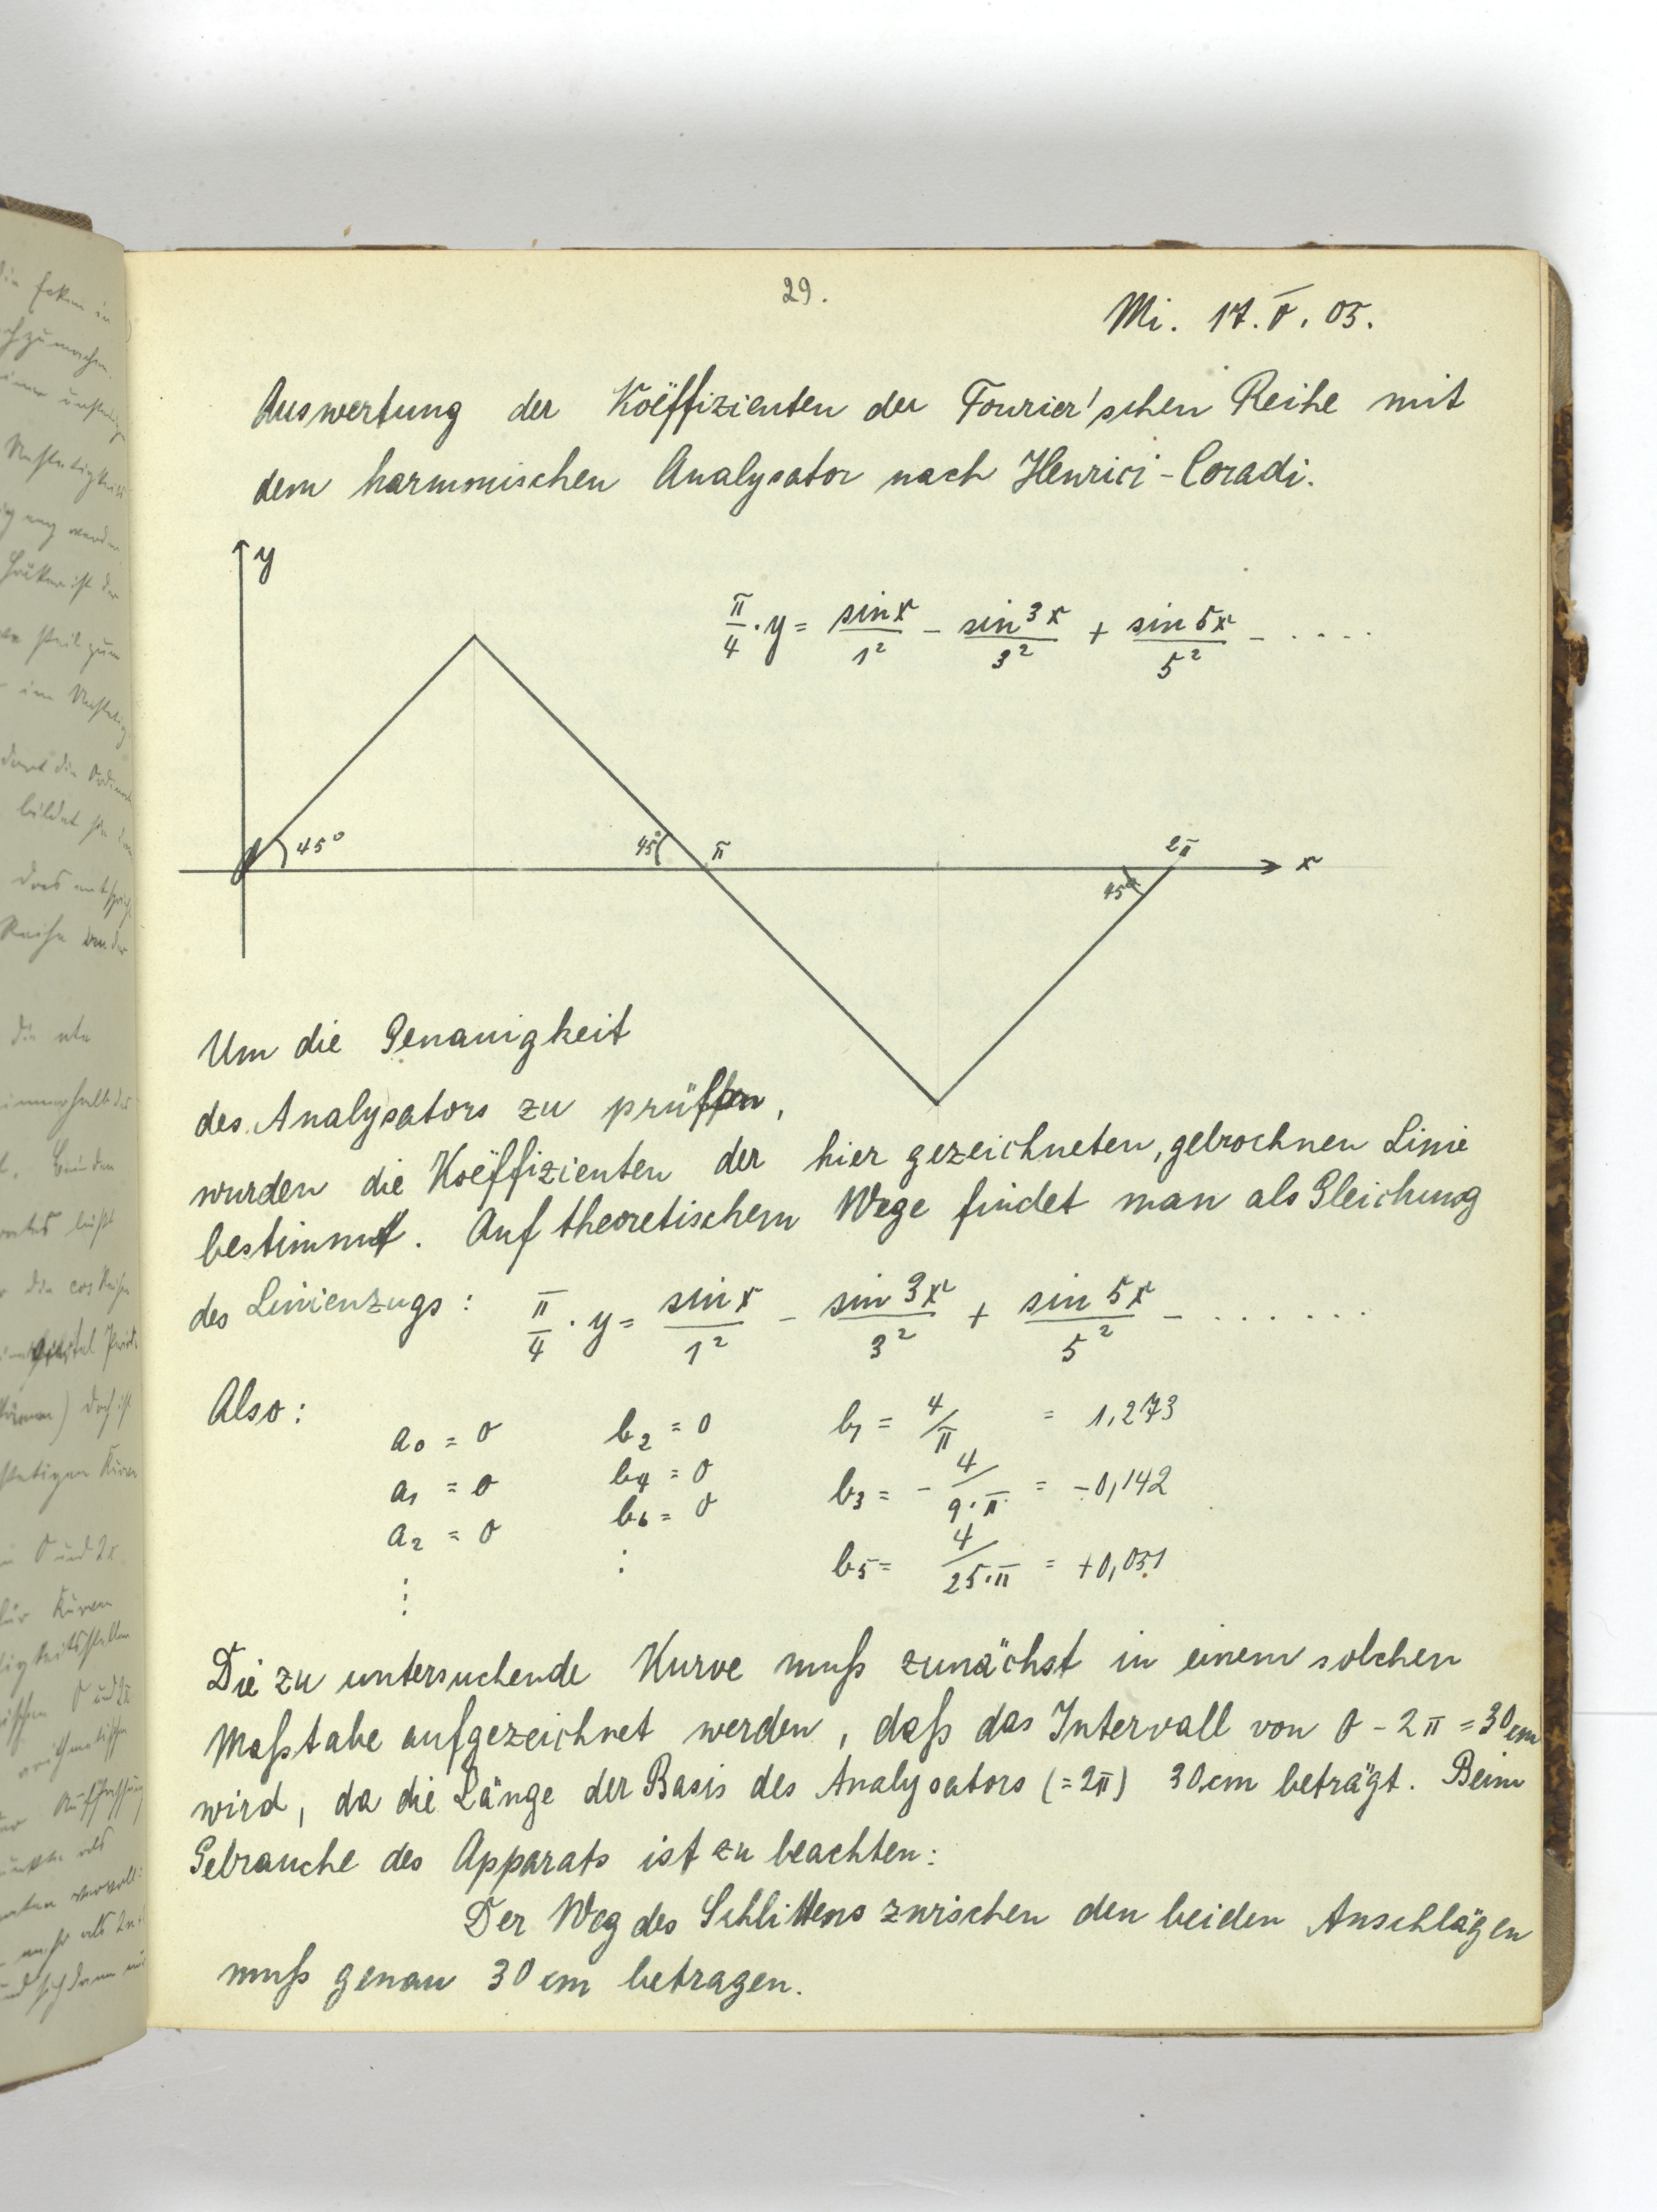 29.
Mi. 17. V. 05.
Auswertung der Koëffizienten der Fourier'schen Reihe mit
dem harmonischen Analysator nach Henrici-Coradi.
y
π/4 · y = sin x/1² - sin 3x/3² + sin 5x/5² - . . . . .
45°
45°
π
2π
x
45°
Um die Genauigkeit
des Analysators zu prüfen,
wurden die Koëffizienten der hier gezeichneten, gebrochnen Linie
bestimmt. Auf theoretischem Wege findet man als Gleichung
des Linienzugs: π/4 · y = sin x/1² - sin 3x/3² + sin 5x/5² - . . . . . . .
Also:
a₀ = 0 b₂ = 0 b₁ = 4/π = 1,273
a₁ = 0 b₄ = 0 b₃ = - 4/9·π = -0,142
a₂ = 0 b₆ = 0 b₅ = 4/25·π = +0,051
⋮ ⋮
Die zu untersuchende Kurve muß zunächst in einem solchen
Maßstabe aufgezeichnet werden, daß das Intervall von 0 - 2π = 30 cm
wird, da die Länge der Basis des Analysators (= 2π) 30 cm beträgt. Beim
Gebrauche des Apparats ist zu beachten:
Der Weg des Schlittens zwischen den beiden Anschlägen
muß genau 30 cm betragen.